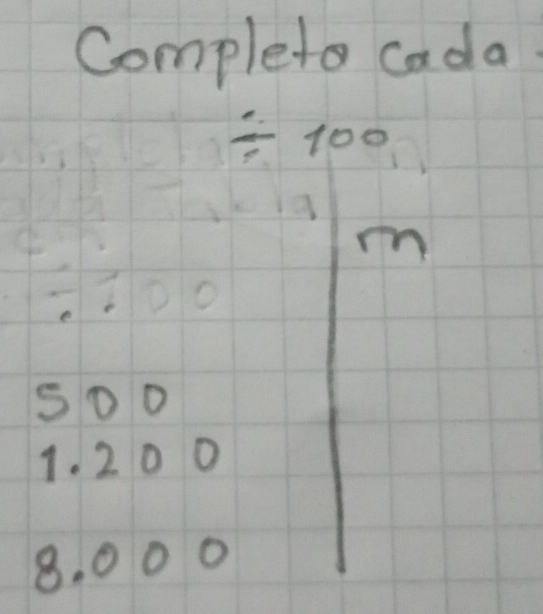 Completo cada
÷ 100
m
÷ 100
500
1.200
8.000